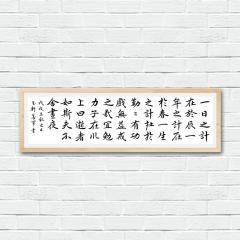 一日之計
在於辰一
年之計在
於春一生
之計在於
勤〻有功
戲無益戒
之哉宜勉
力子在川
上曰逝者
如斯夫不
舍晝夜
戊戌